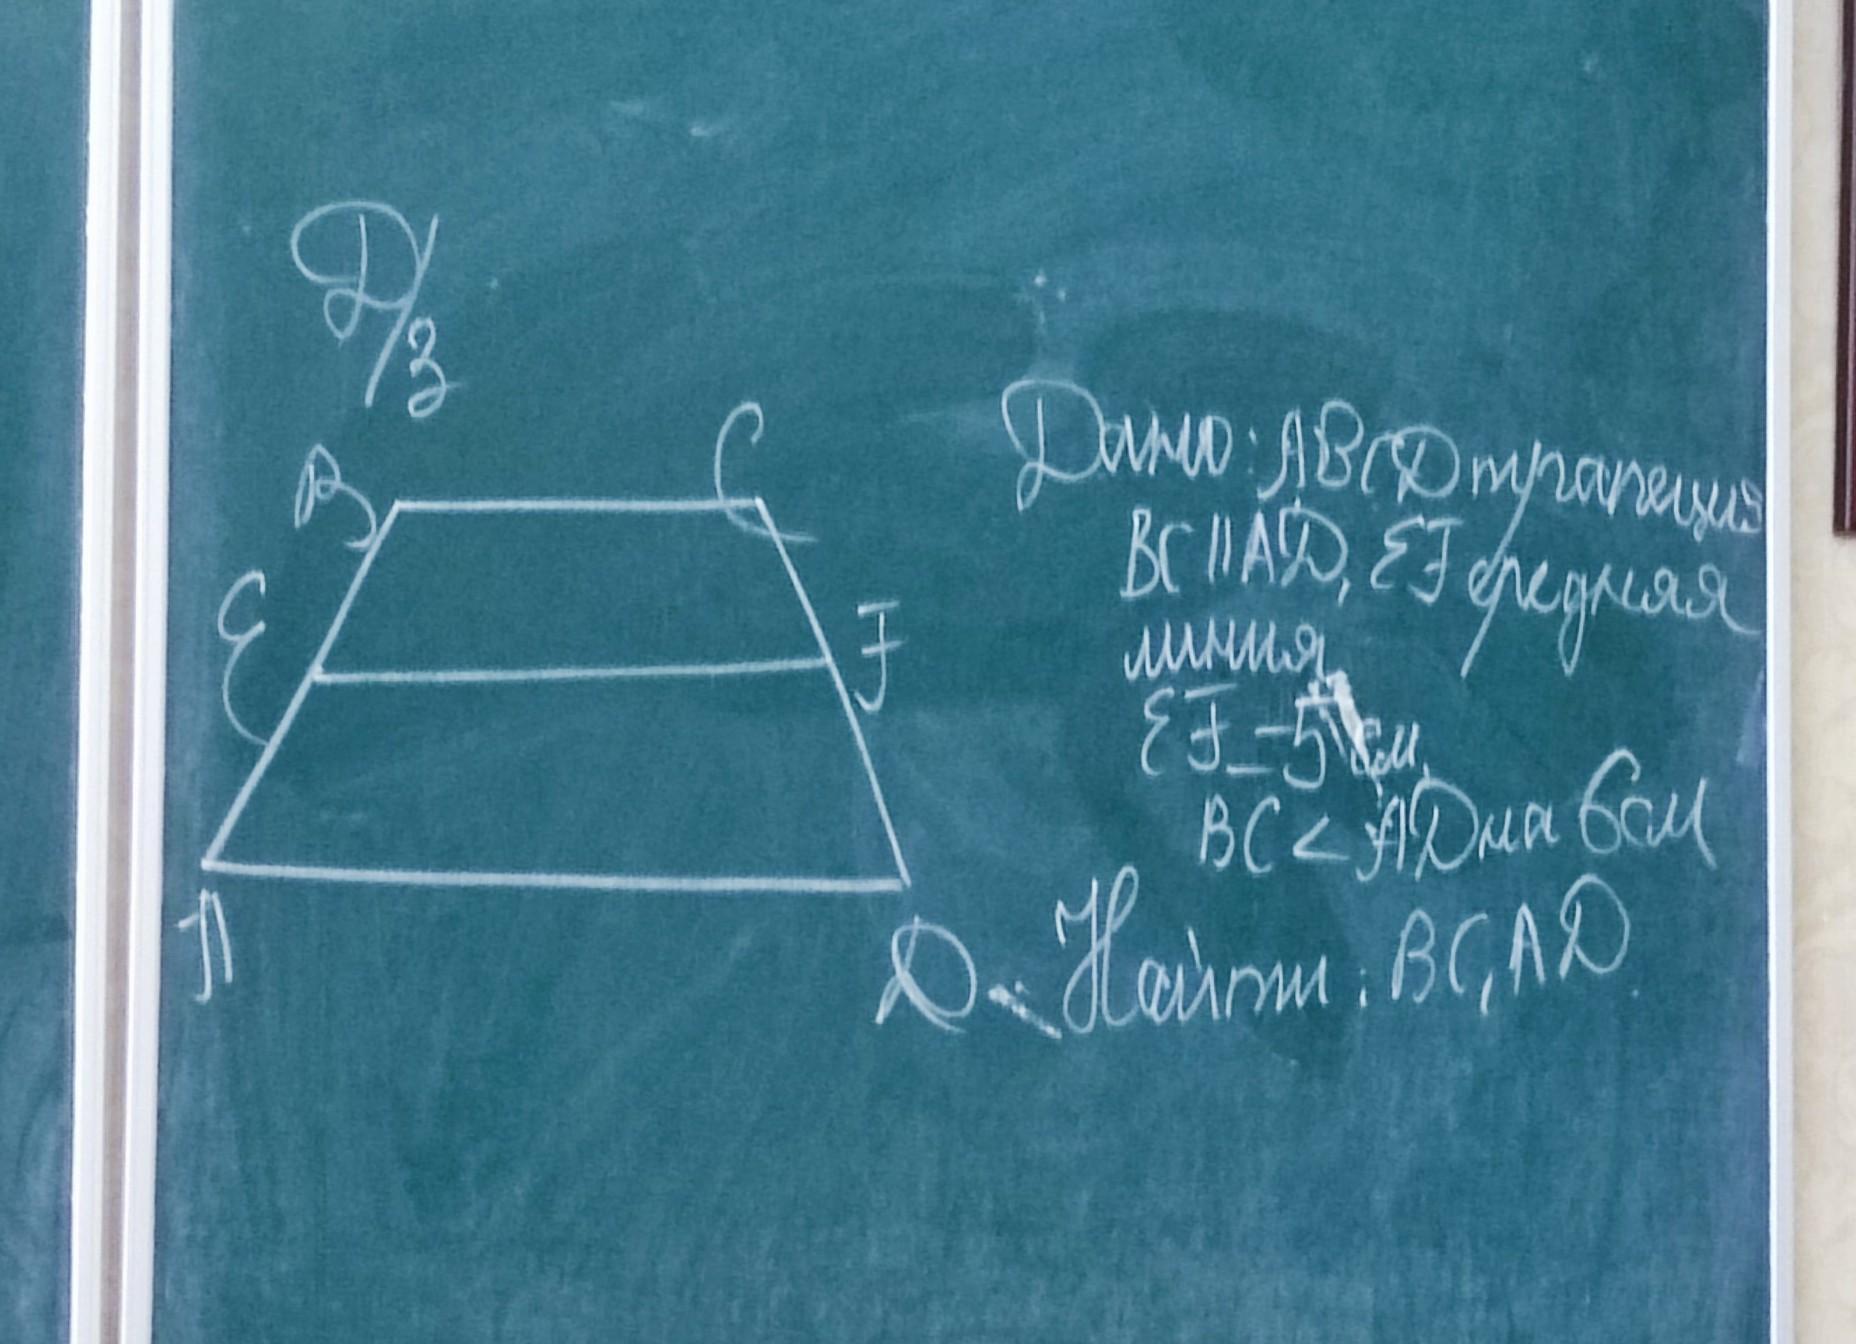 Д/з
B
C
E
F
A
D
Дано: ABCD трапеция
BC || AD, EF средняя
линия
EF = 5 см.
BC < AD на 6 см
Найти: BC, AD.